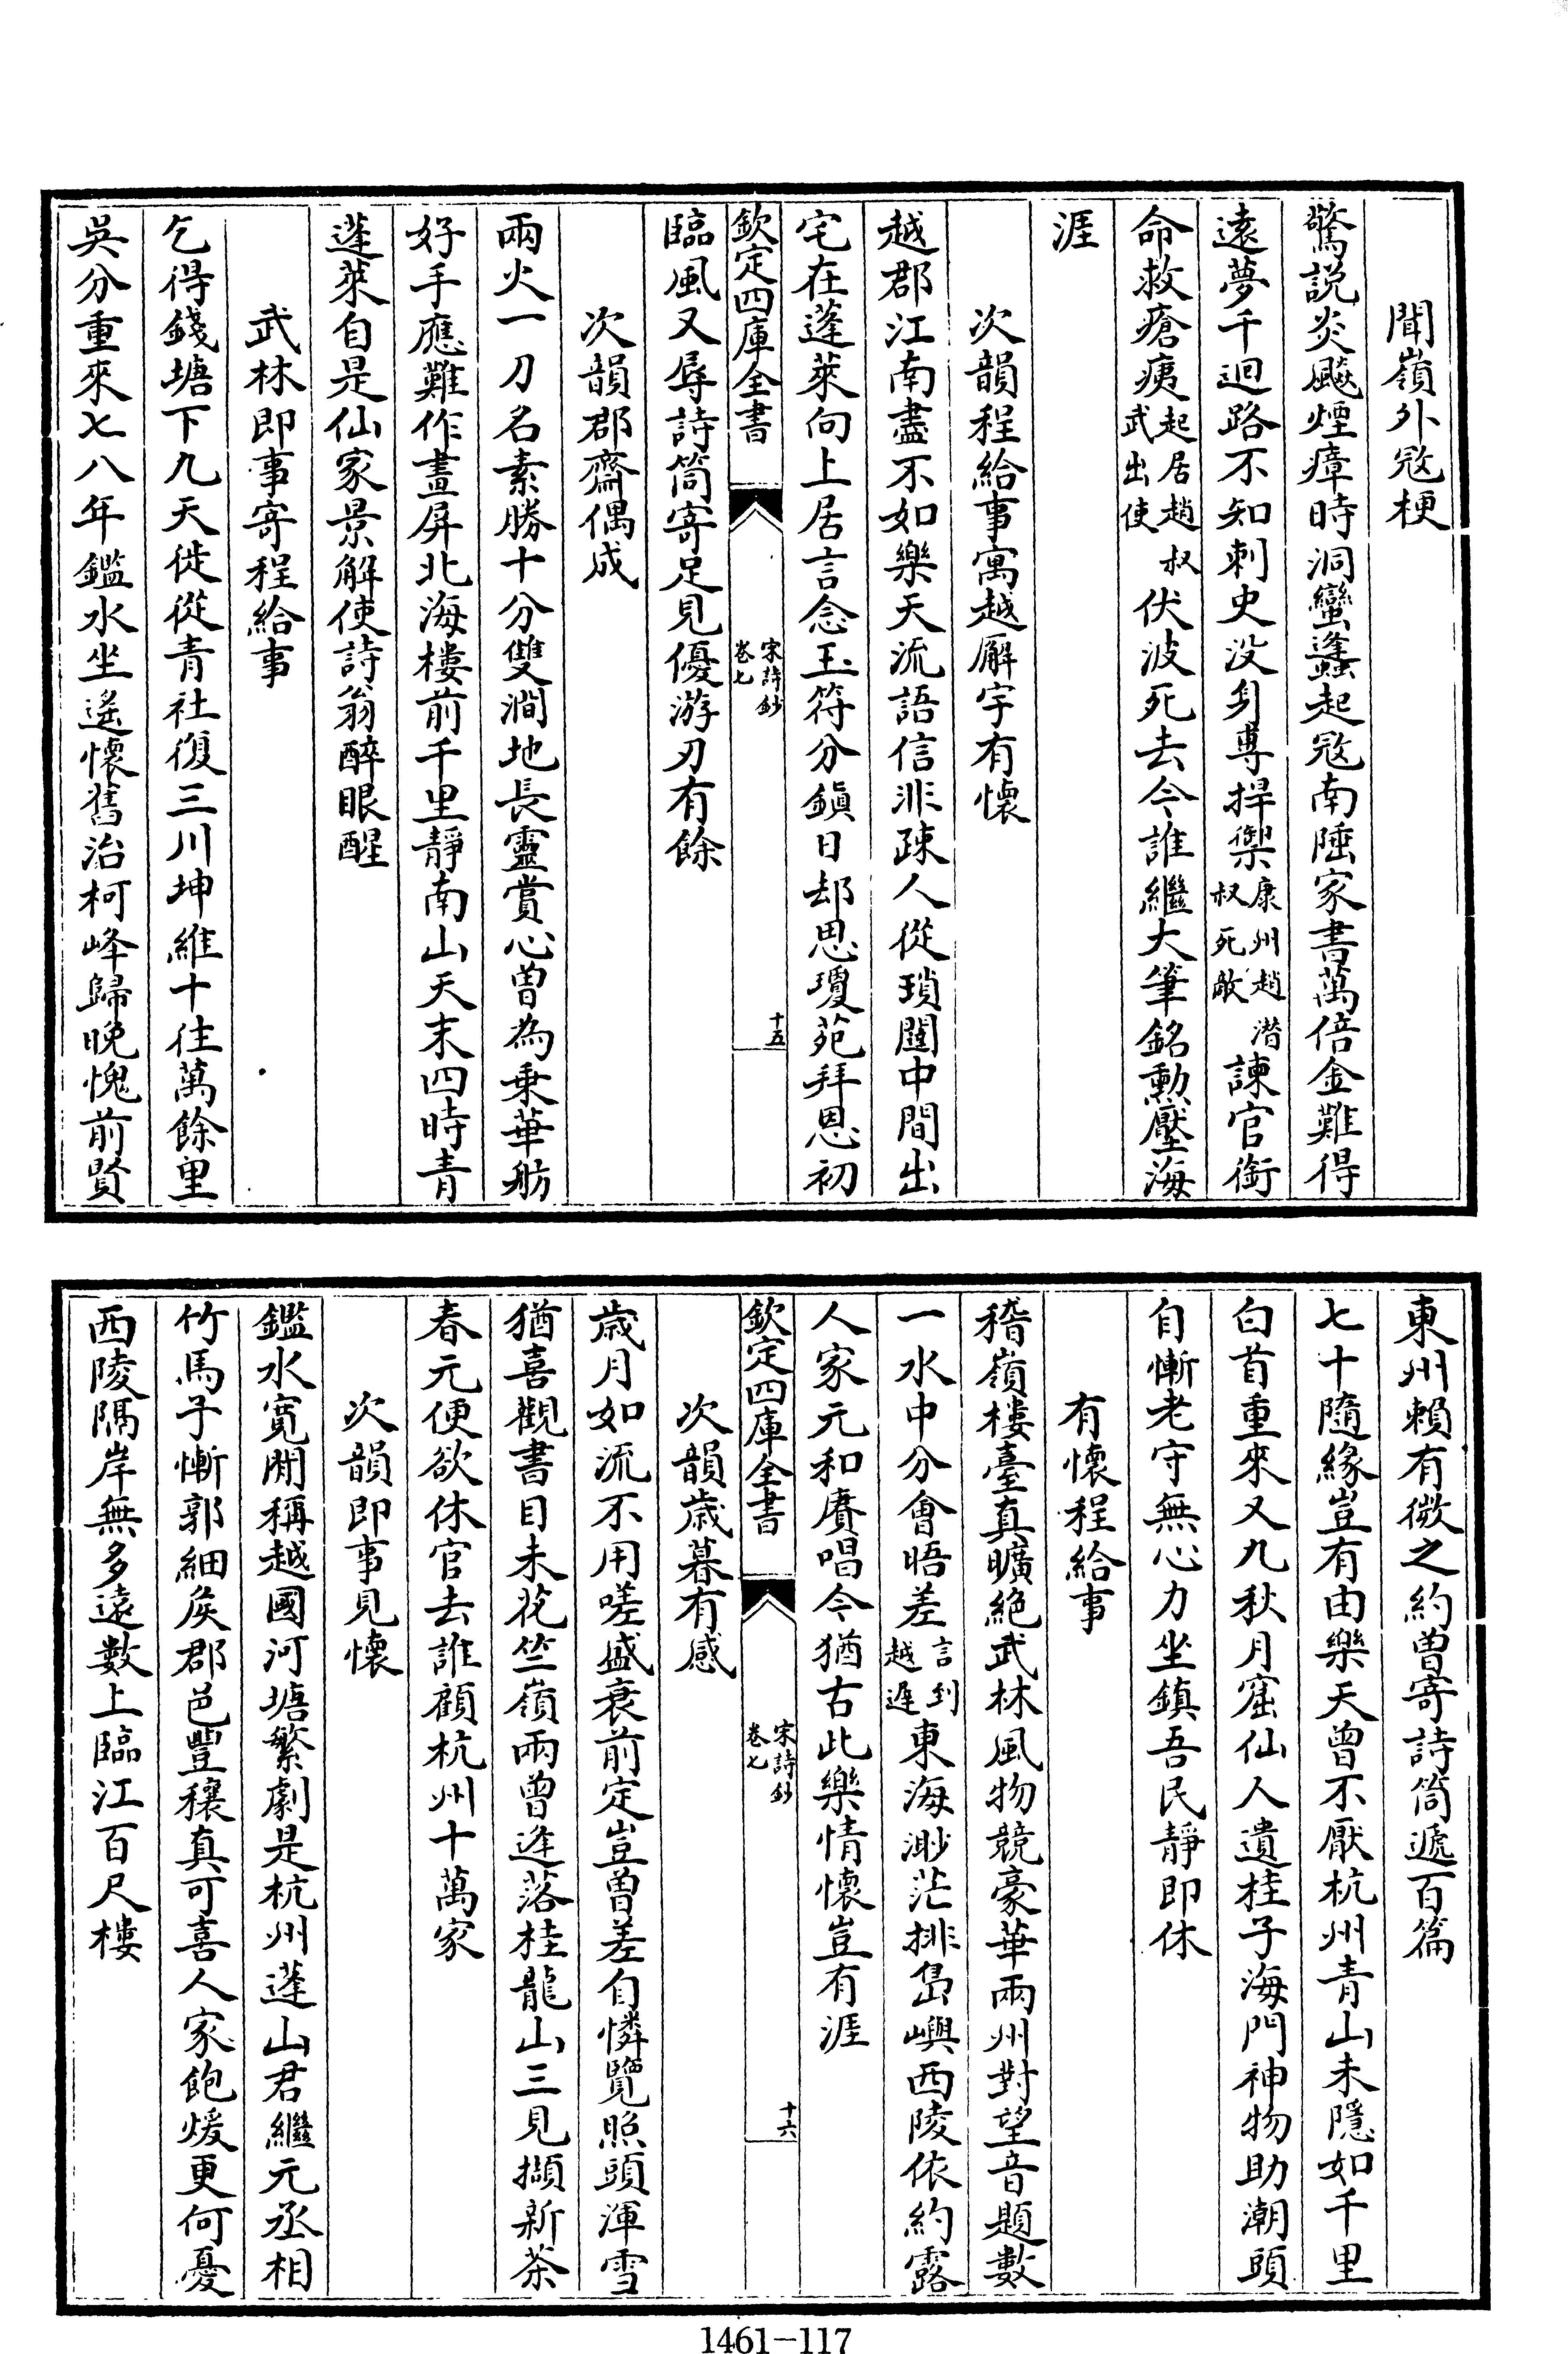 聞嶺外冦梗
驚説炎飈煙瘴時洞蠻蠭起冦南陲家書萬倍金難得
遠夢千迴路不知刺史没身專捍禦康州趙潛叔死敵諫官銜
命救瘡痍起居趙叔武出使伏波死去今誰繼大筆銘勲壓海
涯
次韻程給事寓越廨宇有懷
越郡江南盡不如樂天流語信非疎人從瑣闥中間出
宅在蓬萊向上居言念玉符分鎮日却思瓊苑拜恩初
欽定四庫全書
宋詩鈔
卷七
十五
臨風又辱詩筒寄足見優游刃有餘
次韻郡齋偶成
兩火一刀名素勝十分雙澗地長靈賞心曽為乗華舫
好手應難作畫屏北海樓前千里靜南山天末四時青
蓬萊自是仙家景解使詩翁醉眼醒
武林即事寄程給事
乞得錢塘下九天徙從青社復三川坤維十往萬餘里
吳分重來七八年鑑水坐遙懷舊治柯峰歸晚愧前賢
東州賴有微之約曽寄詩筒遞百篇
七十隨緣豈有由樂天曽不厭杭州青山未隱如千里
白首重來又九秋月窟仙人遺桂子海門神物助潮頭
自慚老守無心力坐鎮吾民靜即休
有懷程給事
稽嶺樓臺真曠絶武林風物競豪華兩州對望音題數
一水中分會晤差言到越遲東海渺茫排島嶼西陵依約露
人家元和賡唱今猶古此樂情懷豈有涯
欽定四庫全書
宋詩鈔
卷七
十六
次韻歲暮有感
歲月如流不用嗟盛衰前定豈曽差自憐覽照頭渾雪
猶喜觀書目未花竺嶺兩曽逢落桂龍山三見擷新茶
春元便欲休官去誰顧杭州十萬家
次韻即事見懷
鑑水寛閒稱越國河塘繁劇是杭州蓬山君繼元丞相
竹馬予慚郭細侯郡邑豐穰真可喜人家飽煖更何憂
西陵隔岸無多遠數上臨江百尺樓
1461-117